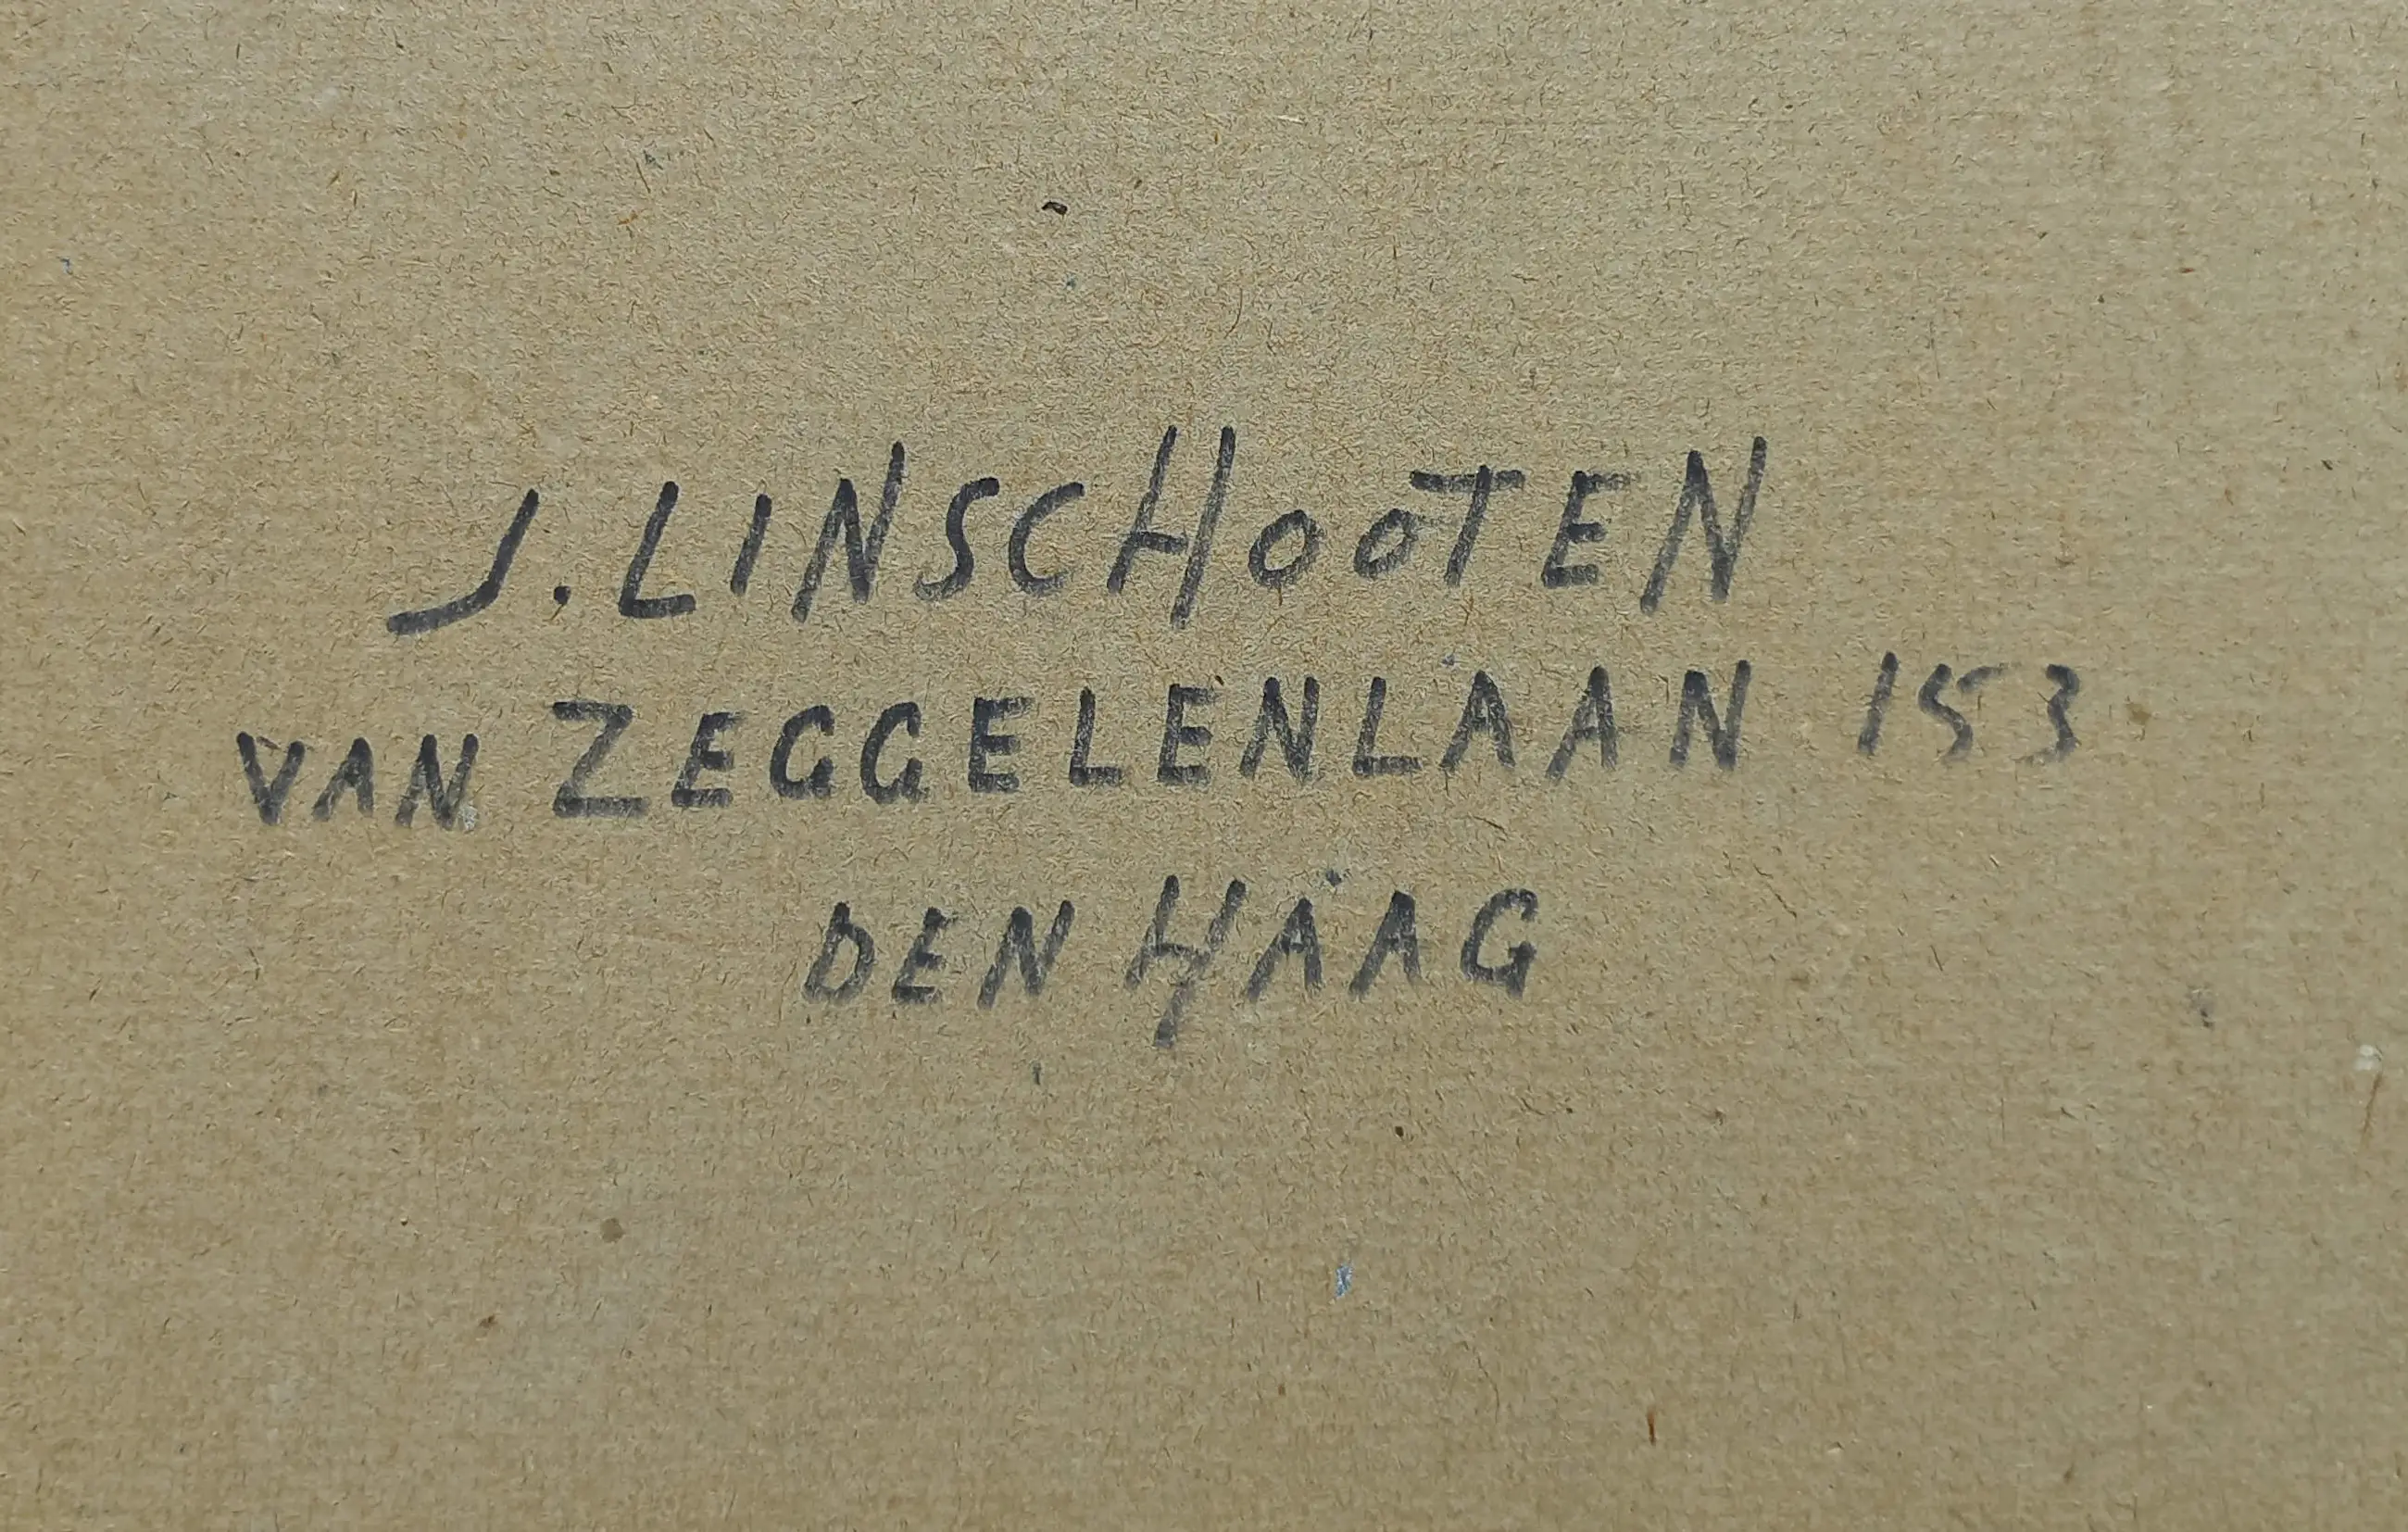 J. LINSCHOOTEN
VAN ZEGGELENLAAN 153
DEN HAAG